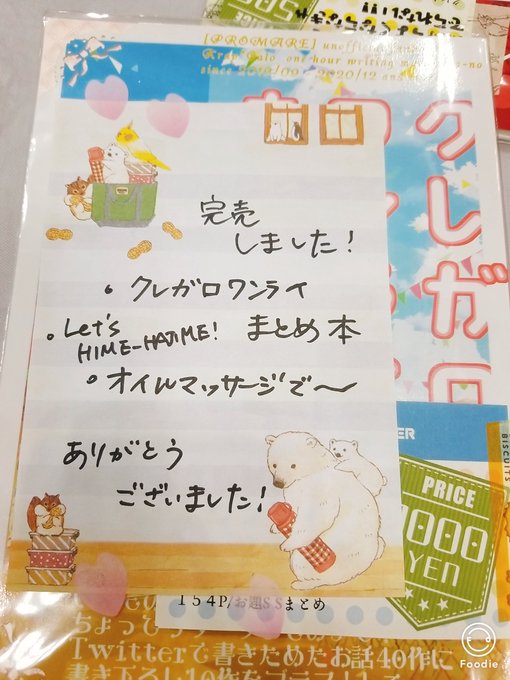 [PROMARE] unoffici
one hour writing
since 2019/09 2020/12
クレガロ
完売
しました!
・クレガロワンライ
・Let's
HIME-HAJIME! まとめ本
・オイルマッサージで〜
ありがとう
ございました!
BISCUITS
PRICE
1000
YEN
154P/お題SSまとめ
ちょっとう
「Twitterで書きためたお話40作に
書き下ろし10作をプラスして
Foodie